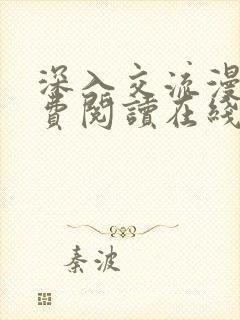 深入交流漫
費閱讀在綫
秦波